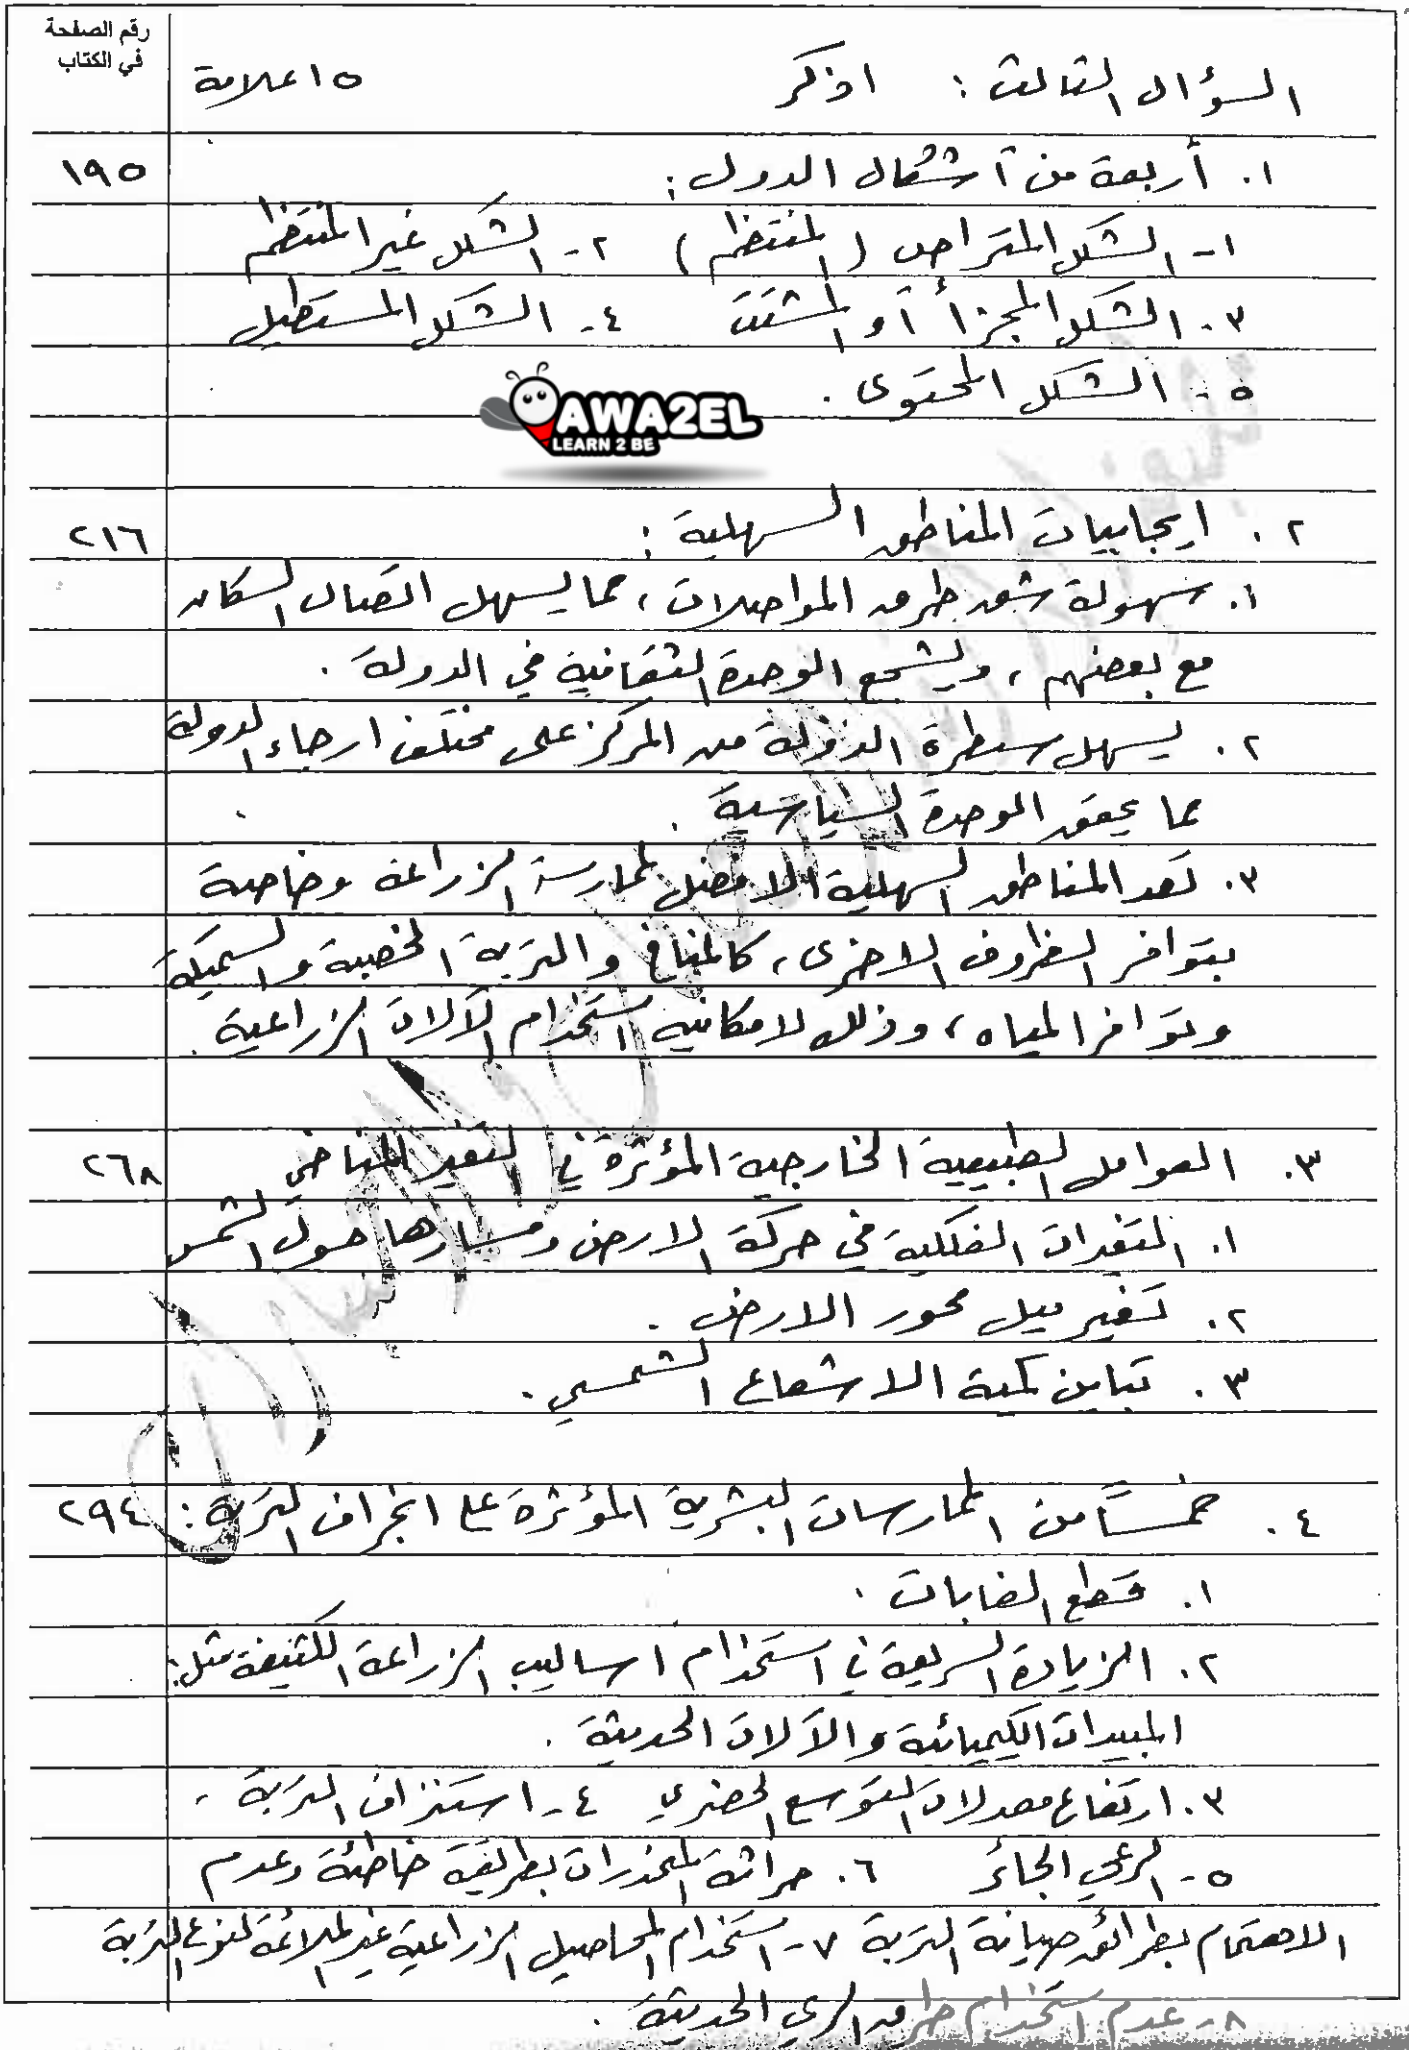 رقم الصفحة
في الكتاب
السؤال الثالث : اذكر ١٥ علامة
١. أربعة من أشكال الدول : ١٩٥
١- الشكل المتراص (المنتظم) ٢- الشكل غير المنتظم
٣. الشكل المجزأ أو المشتت ٤- الشكل المستطيل
٥- الشكل المحتوى .
AWA2EL
LEARN 2 BE
٢. ايجابيات المناطق السهلية : ٢١٦
١. سهولة شق طرق المواصلات ، مما يسهل اتصال السكان
مع بعضهم ، ويشجع الوحدة الثقافية في الدولة .
٢. يسهل سيطرة الدولة من المركز على مختلف ارجاء الدولة
مما يحقق الوحدة السياسية .
٣. تعد المناطق السهلية الافضل لممارسة الزراعة وخاصة
بتوافر الظروف الاخرى ، كالمناخ والتربة الخصبة والسميكة
وتوافر المياه ، وذلك لامكانية استخدام الآلات الزراعية .
٣. العوامل الطبيعية الخارجية المؤثرة في التغير المناخي ٢٦٨
١. المتغيرات الفلكية في حركة الارض ومسارها حول الشمس
٢. تغير ميل محور الارض .
٣. تباين كمية الاشعاع الشمسي .
٤. خمساً من الممارسات البشرية المؤثرة على انجراف التربة : ٢٩٤
١. قطع الغابات .
٢. الزيادة السريعة في استخدام اساليب الزراعة الكثيفة مثل :
المبيدات الكيميائية والآلات الحديثة .
٣. ارتفاع معدلات التوسع الحضري ٤- استنزاف التربة .
٥- الرعي الجائر ٦. حراثة المنحدرات بطريقة خاطئة وعدم
الاهتمام بطرائق صيانة التربة ٧- استخدام المحاصيل الزراعية غير الملائمة لنوع التربة
٨- عدم استخدام طرق الري الحديثة .